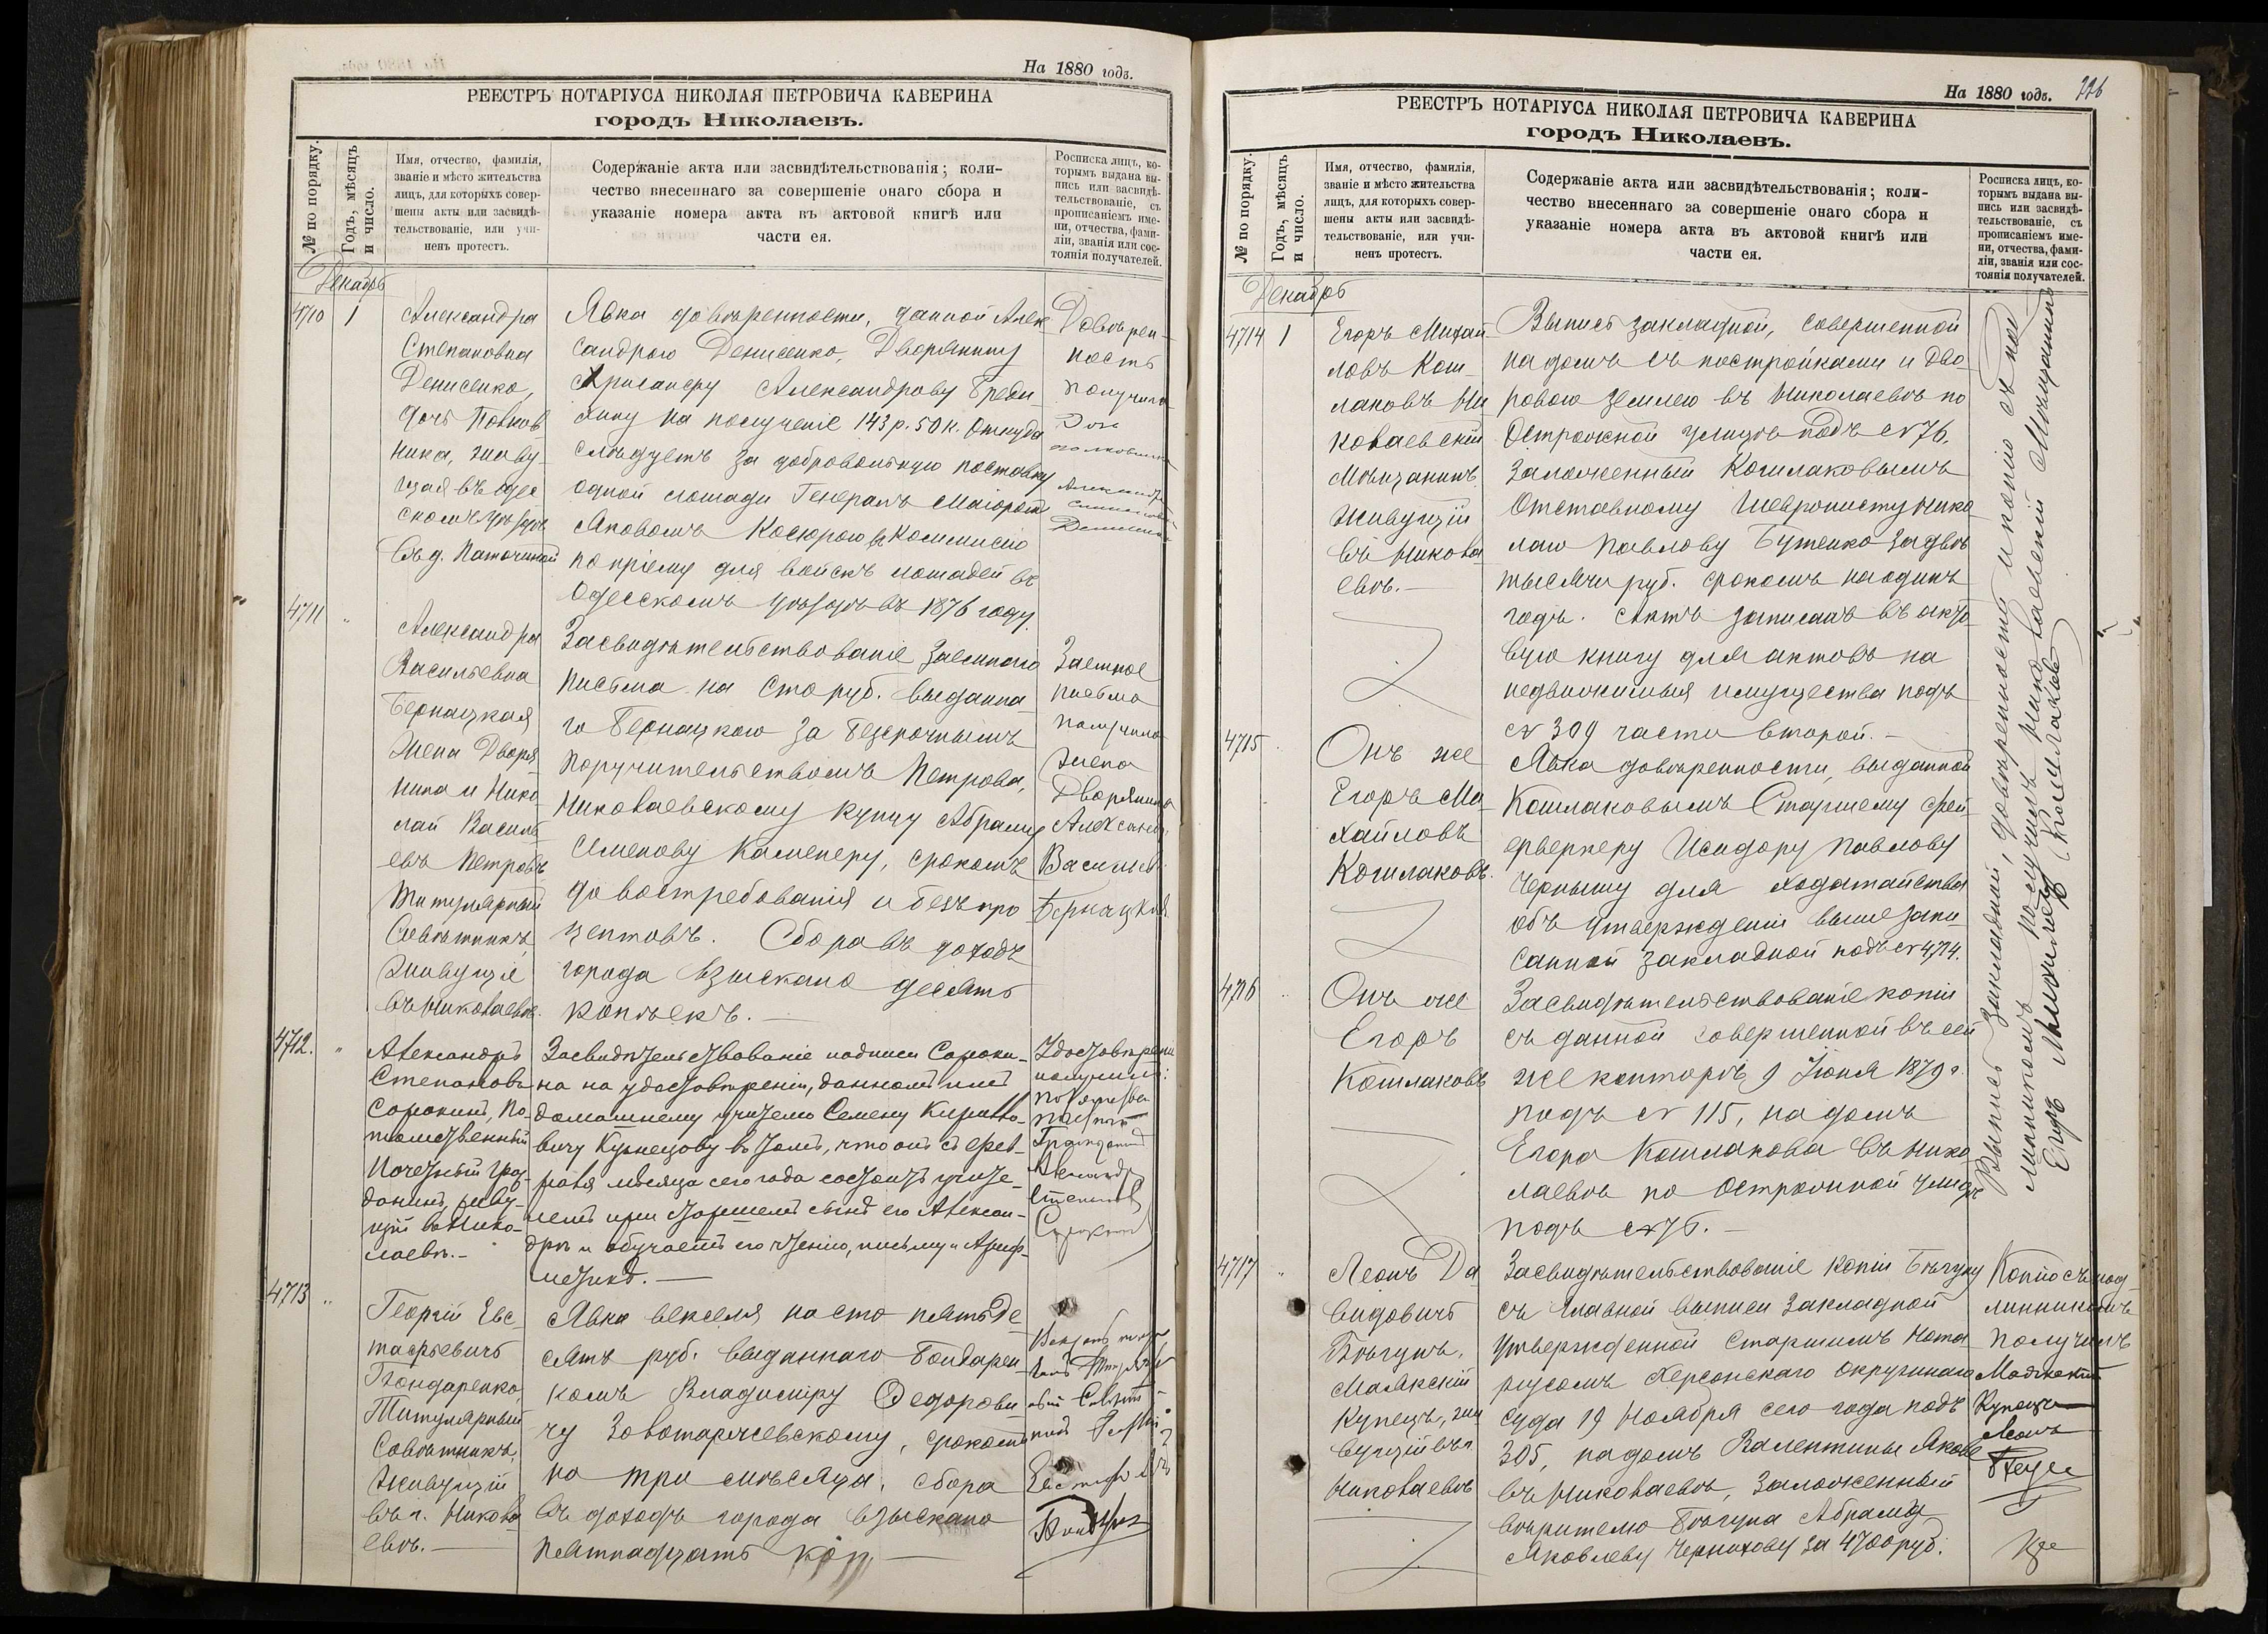 На 1880 годъ.
РЕЕСТРЪ НОТАРІУСА НИКОЛАЯ ПЕТРОВИЧА КАВЕРИНА
городъ Николаевъ.
№ по порядку.
Годъ, мѣсяцъ
и число.
Имя, отчество, фамилія,
званіе и мѣсто жительства
лицъ, для которыхъ совер-
шены акты или засвидѣ-
тельствованіе, или учи-
ненъ протестъ.
Содержаніе акта или засвидѣтельствованія; коли-
чество внесеннаго за совершеніе онаго сбора и
указаніе номера акта въ актовой книгѣ или
части ея.
Росписка лицъ, ко-
торымъ выдана вы-
пись или засвидѣ-
тельствованіе, съ
прописаніемъ име-
ни, отчества, фами-
ліи, званія или сос-
тоянія получателей.
Декабрь
4710
1
Александра
Степановна
Денисенко,
дочь Полков
ника, живу-
щая въ Одес
скомъ уѣздѣ
Явка довѣренности, данной Алек
сандрою Денисенко, Дворянину
Александрову
на полученіе 143 р. 50 к. Откуда
слѣдуетъ за добровольную поставку
одной лошади Генералъ Маіоромъ
въ Коммисію
по пріему для войскъ лошадей въ
Одесскомъ уѣздѣ въ 1876 году.
Довѣрен-
ность
получила
Дочь
полковника
Александра
Степановна
Денисенко
4711
"
Александра
Васильевна
Бернацкая
жена Дворя
нина и Нико
лай Василь
евъ Петровъ
Титулярный
Совѣтникъ
Живущіе
въ Николаевѣ.
Засвидѣтельствованіе Заемнаго
письма на Сто руб. выданна-
го Бернацкою за безсрочнымъ
поручительствомъ Петрова,
Николаевскому купцу Абраму
Семенову Каменеру, срокомъ
до востребованія и безъ про
центовъ. Сбора въ доходъ
города взыскано десять
копѣекъ.—
Заемное
письмо
получила
жена
Дворянина
Александ.
Васильев.
Бернацкая
4712.
"
Александръ
Степановъ
Сорокинъ, По-
томственный
Почетный Гра-
жданинъ, живу-
щій въ Нико-
лаевѣ.—
Засвидѣтельствованіе подписи Сороки-
на на удостовѣреніи, данномъ имъ
домашнему учителю Семену Кирилло-
вичу Кузнецову въ томъ, что онъ съ Фев-
раля мѣсяца сего года состоитъ учите-
лемъ при старшемъ сынѣ его Алексан-
дрѣ и обучаетъ его чтенію, письму и Ариф-
метикѣ.—
Удостовѣреніе
получилъ:
Александръ
Степановъ
Сорокинъ
4713
"
Георгій Евс
тафьевичъ
Бондаренко,
Титулярный
Совѣтникъ,
Живущій
въ г. Никола
евѣ.—
Явка векселя на сто пятьде
сятъ руб. выданнаго Бондарен
комъ Владиміру Федорови
чу Золотаревскому, срокомъ
на три мѣсяца. Сбора
въ доходъ города взыскано
пятнадцать коп.—
На 1880 годъ.
226
РЕЕСТРЪ НОТАРІУСА НИКОЛАЯ ПЕТРОВИЧА КАВЕРИНА
городъ Николаевъ.
№ по порядку.
Годъ, мѣсяцъ
и число.
Имя, отчество, фамилія,
званіе и мѣсто жительства
лицъ, для которыхъ совер-
шены акты или засвидѣ-
тельствованіе, или учи-
ненъ протестъ.
Содержаніе акта или засвидѣтельствованія; коли-
чество внесеннаго за совершеніе онаго сбора и
указаніе номера акта въ актовой книгѣ или
части ея.
Росписка лицъ, ко-
торымъ выдана вы-
пись или засвидѣ-
тельствованіе, съ
прописаніемъ име-
ни, отчества, фами-
ліи, званія или сос-
тоянія получателей.
Декабрь
4714
1
Егоръ Михай
ловъ Кош-
лаковъ Ни
колаевскій
Мѣщанинъ.
Живущій
въ Никола
евѣ.—
Выпись закладной, совершенной
на домъ съ постройками и Дво
ровою землею въ Николаевѣ по
Острожной улицѣ подъ № 76.
Заложенный Кошлаковымъ
Отставному Шевронисту Нико
лаю Павлову Бутенко за двѣ
тысячи руб. срокомъ на одинъ
годъ. Актъ записанъ въ акто
вую книгу для актовъ на
недвижимыя имущества подъ
№ 309 части второй.—
4715
Онъ же
Егоръ Ми
хайловъ
Кошлаковъ.
Явка довѣренности, выданной
Кошлаковымъ Старшему фей
ерверкеру Исидору Павлову
Чернышу для ходатайства
объ утвержденіи выше запи
санной закладной подъ № 4714.
4716
Онъ же
Егоръ
Кошлаковъ
Засвидѣтельствованіе копіи
съ данной совершенной въ сей
же конторѣ 9 Іюня 1879 г.
подъ № 115, на домъ
Егора Кошлакова въ Нико
лаевѣ по Острожной улицѣ
подъ № 76.—
Выпись закладной, довѣренность и копію съ под
линникомъ получилъ Николаевскій Мѣщанинъ
Егоръ Михайловъ Кошлаковъ
4717
"
Леонъ Да
видовичъ
Бѣгунъ,
Маякскій
Купецъ, жи
вущій въ г.
Николаевѣ
Засвидѣтельствованіе копіи Бѣгуну
съ главной выписи закладной
утвержденной Старшимъ Нота
ріусомъ Херсонскаго Окружнаго
Суда 19 Ноября сего года подъ
305, на домъ Валентины Яковв
въ Николаевѣ, Заложенный
вѣрителю Бѣгуна Абраму
Яковлеву Чернихову за 4700 руб.
Копію съ под
линникомъ
получилъ
Маякскій
Купецъ
Леонъ